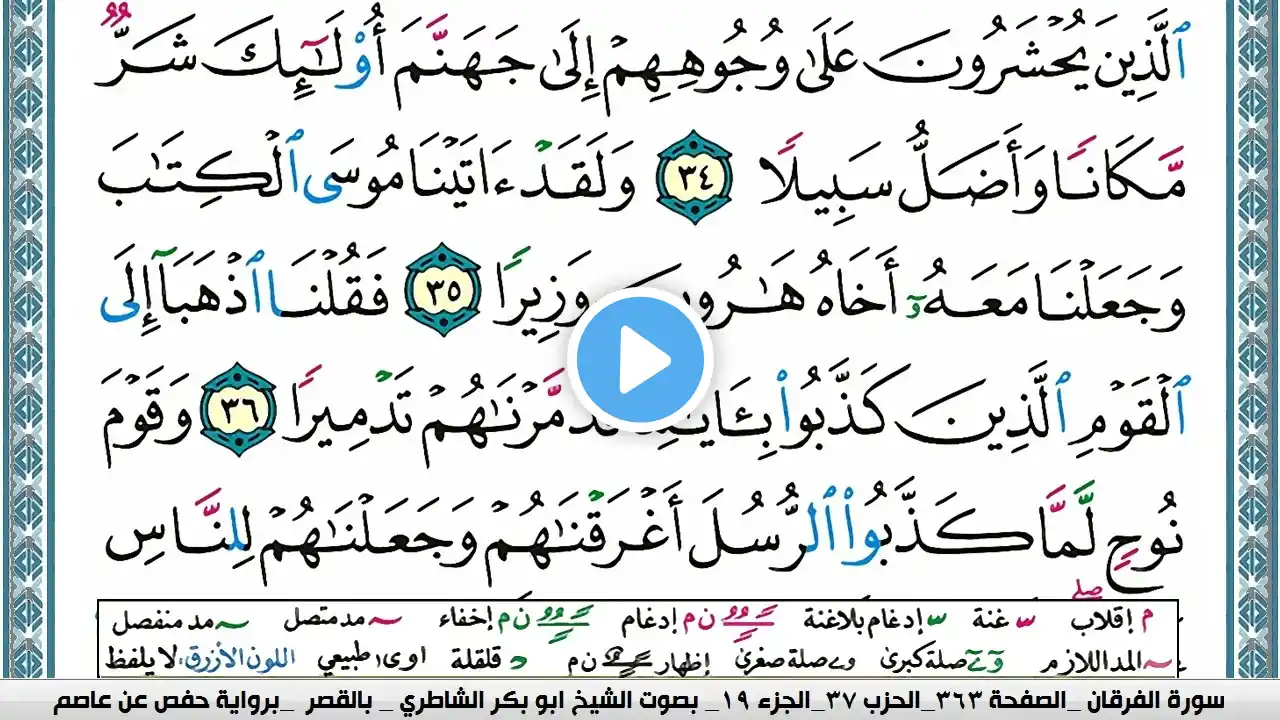 ٱلَّذِينَ يُحْشَرُونَ عَلَىٰ وُجُوهِهِمْ إِلَىٰ جَهَنَّمَ أُوْلَٰٓئِكَ شَرٌّ
مَّكَانًا وَأَضَلُّ سَبِيلًا ٣٤ وَلَقَدْ ءَاتَيْنَا مُوسَى ٱلْكِتَٰبَ
وَجَعَلْنَا مَعَهُۥٓ أَخَاهُ هَٰرُونَ وَزِيرًا ٣٥ فَقُلْنَا ٱذْهَبَآ إِلَى
ٱلْقَوْمِ ٱلَّذِينَ كَذَّبُوا۟ بِـَٔايَٰتِنَا فَدَمَّرْنَٰهُمْ تَدْمِيرًا ٣٦ وَقَوْمَ
نُوحٍ لَّمَّا كَذَّبُوا۟ ٱلرُّسُلَ أَغْرَقْنَٰهُمْ وَجَعَلْنَٰهُمْ لِلنَّاسِ
م إقلاب س غنة س إدغام بلا غنة ن م إدغام ن م إخفاء مد متصل مد منفصل
المد اللازم صلة كبرى صلة صغرى إظهار ن م د قلقلة اوى طبيعي اللون الأزرق لا يلفظ
سورة الفرقان _الصفحة ٣٦٣_الحزب ٣٧_الجزء ١٩_ بصوت الشيخ ابو بكر الشاطري _ بالقصر _برواية حفص عن عاصم